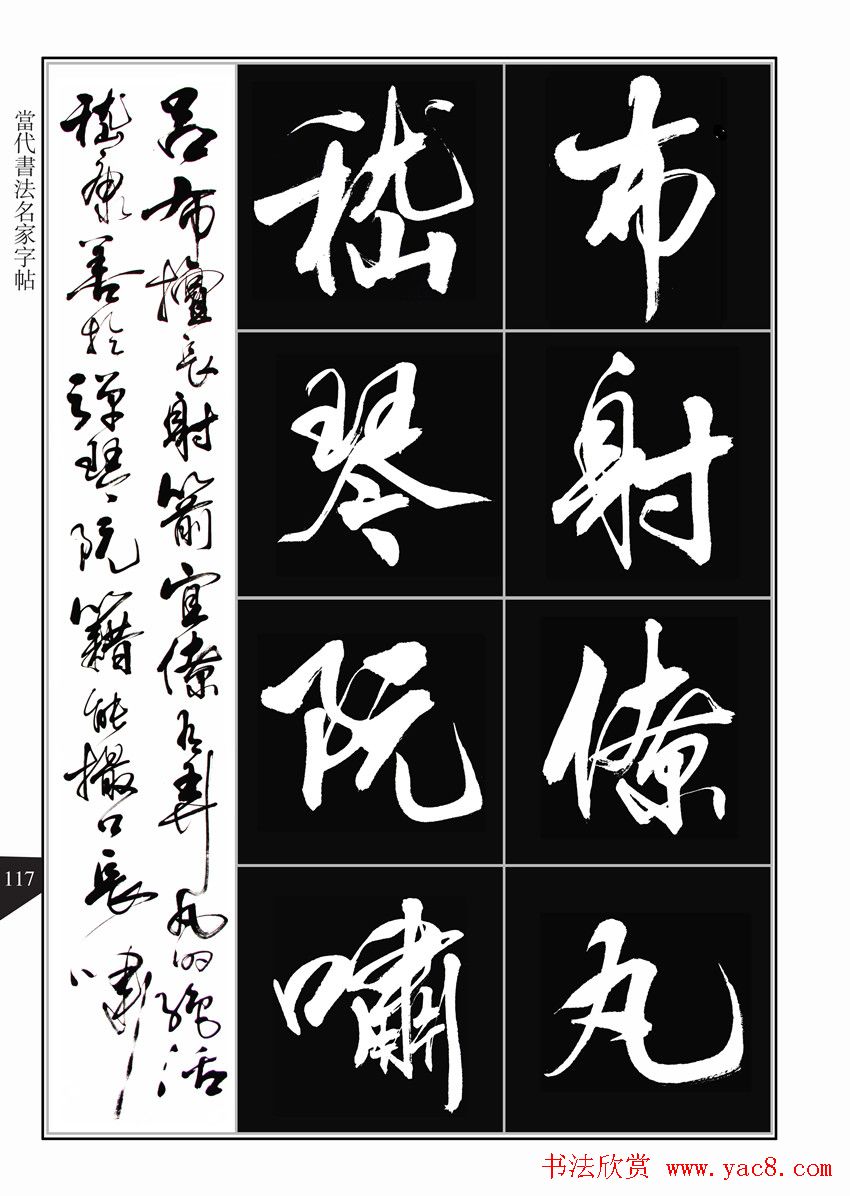 當代書法名家字帖
布射僚丸
嵇琴阮嘯
吕布擅長射箭宜僚有弄丸的絶活
嵇康善於彈琴阮籍能撮口長嘯
117
书法欣赏 www.yac8.com